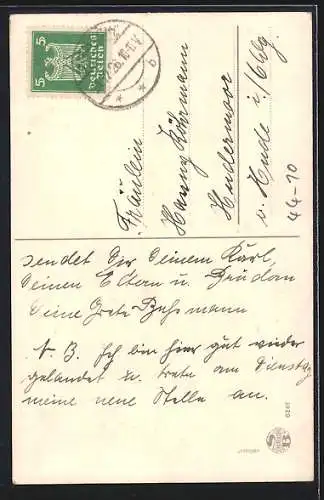 5 Deutsches Reich 5
26.10-11V
* b *
Fräulein
Hanny Köhrmann
Hudermoor
b. Hude i/Oldg.
44-10
sendet Dir Deinem Karl,
Deinen Eltern u. Brüdern
Deine Grete
N. B. Ich bin hier gut wieder
gelandet u. trete am Dienstag
meine neue Stelle an.